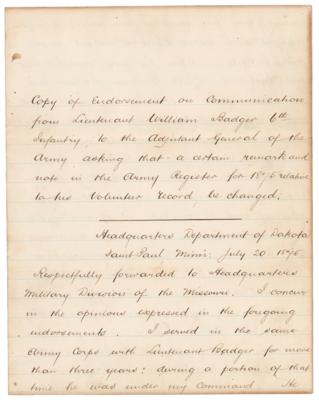 Copy of Endorsement on Communication
from Lieutenant William Badger 6th
Infantry, to the Adjutant General of the
Army asking that a certain remark and
note in the Army Register for 1876 relative
to his Volunteer record be changed.
Headquarters Department of Dakota
Saint Paul, Minn: July 20 1876.
Respectfully forwarded to Headquarters
Military Division of the Missouri. I concur
in the opinions expressed in the foregoing
endorsements. I served in the same
Army Corps with Lieutenant Badger for more
than three years: during a portion of that
time he was under my command. He